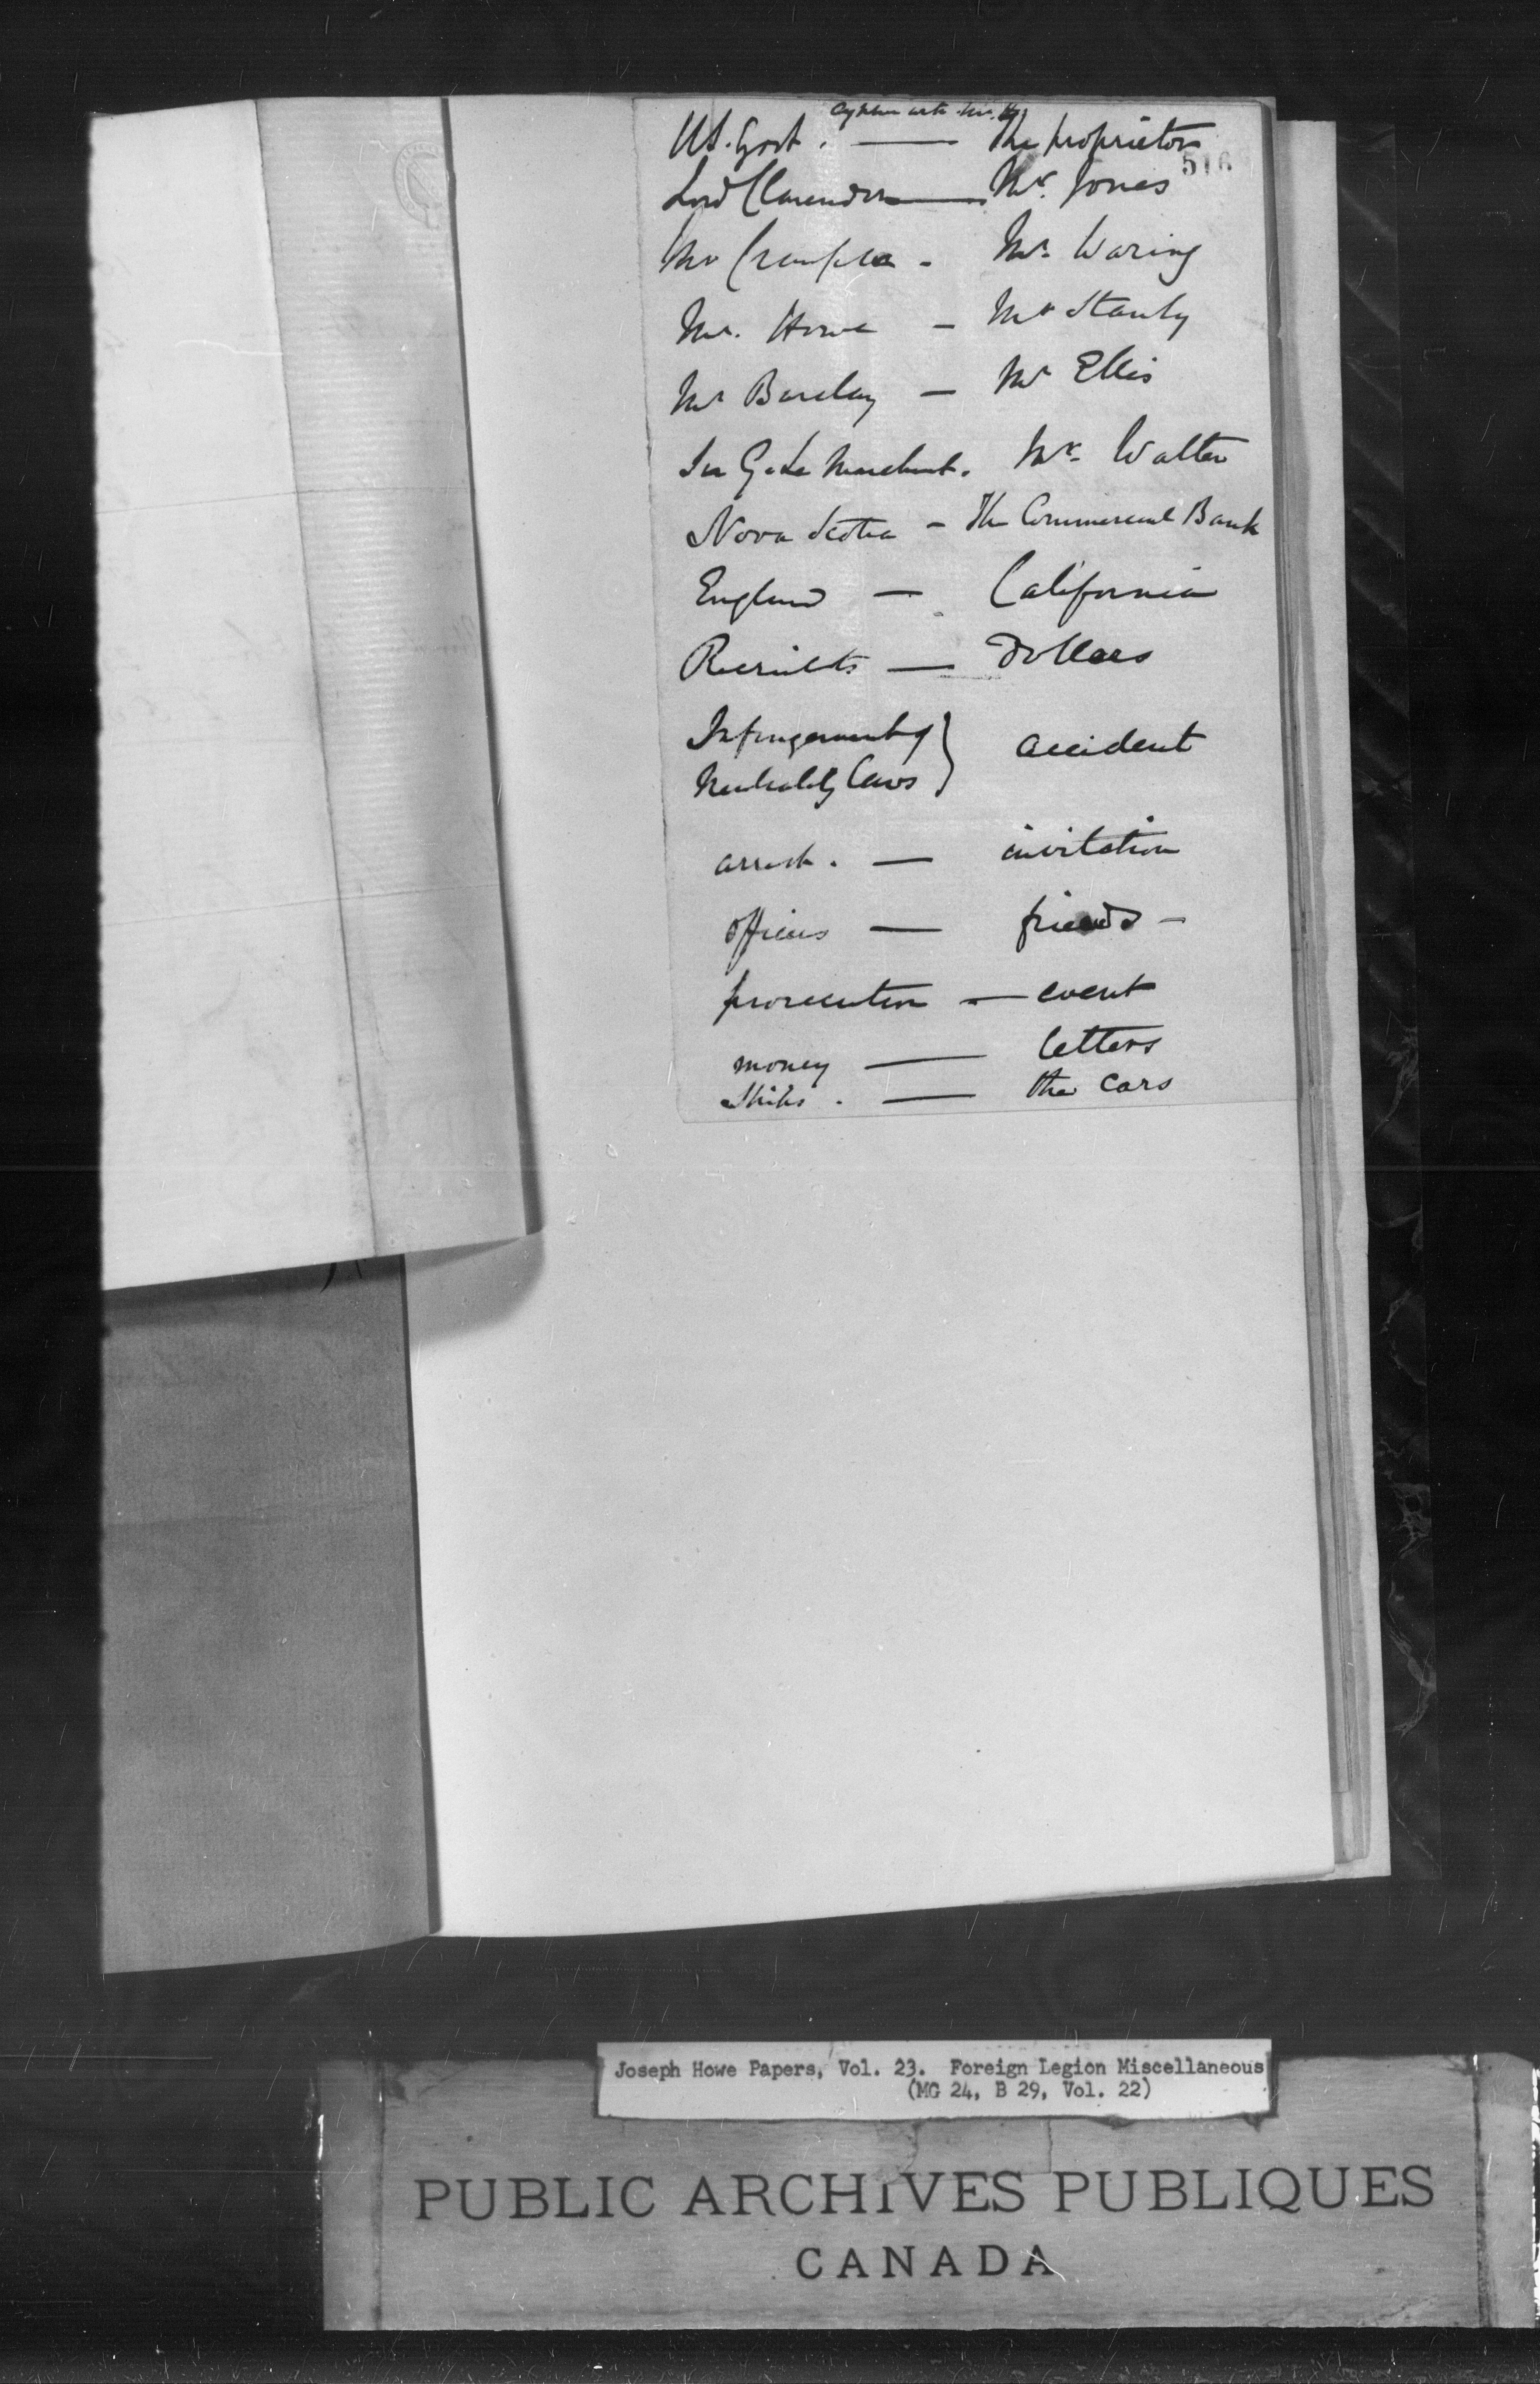 Cypher with Mr. H
U.S. Govt. — The proprietors
516
Lord Clarendon — Mr. Jones
Mr Crampton - Mr. Waring
Mr. Howe - Mr Stanly
Mr Barclay — Mr Ellis
Sir G. Le Marchant. Mr. Walter
Nova Scotia - The Commercial Bank
England — California
Recruits — Dollars
Infringement of } accident
Neutrality Laws
arrest. — invitation
officers — friends -
prosecution — event
money — letters
Ships. — the cars
Joseph Howe Papers, Vol. 23. Foreign Legion Miscellaneous
(MG 24, B 29, Vol. 22)
PUBLIC ARCHIVES PUBLIQUES
CANADA